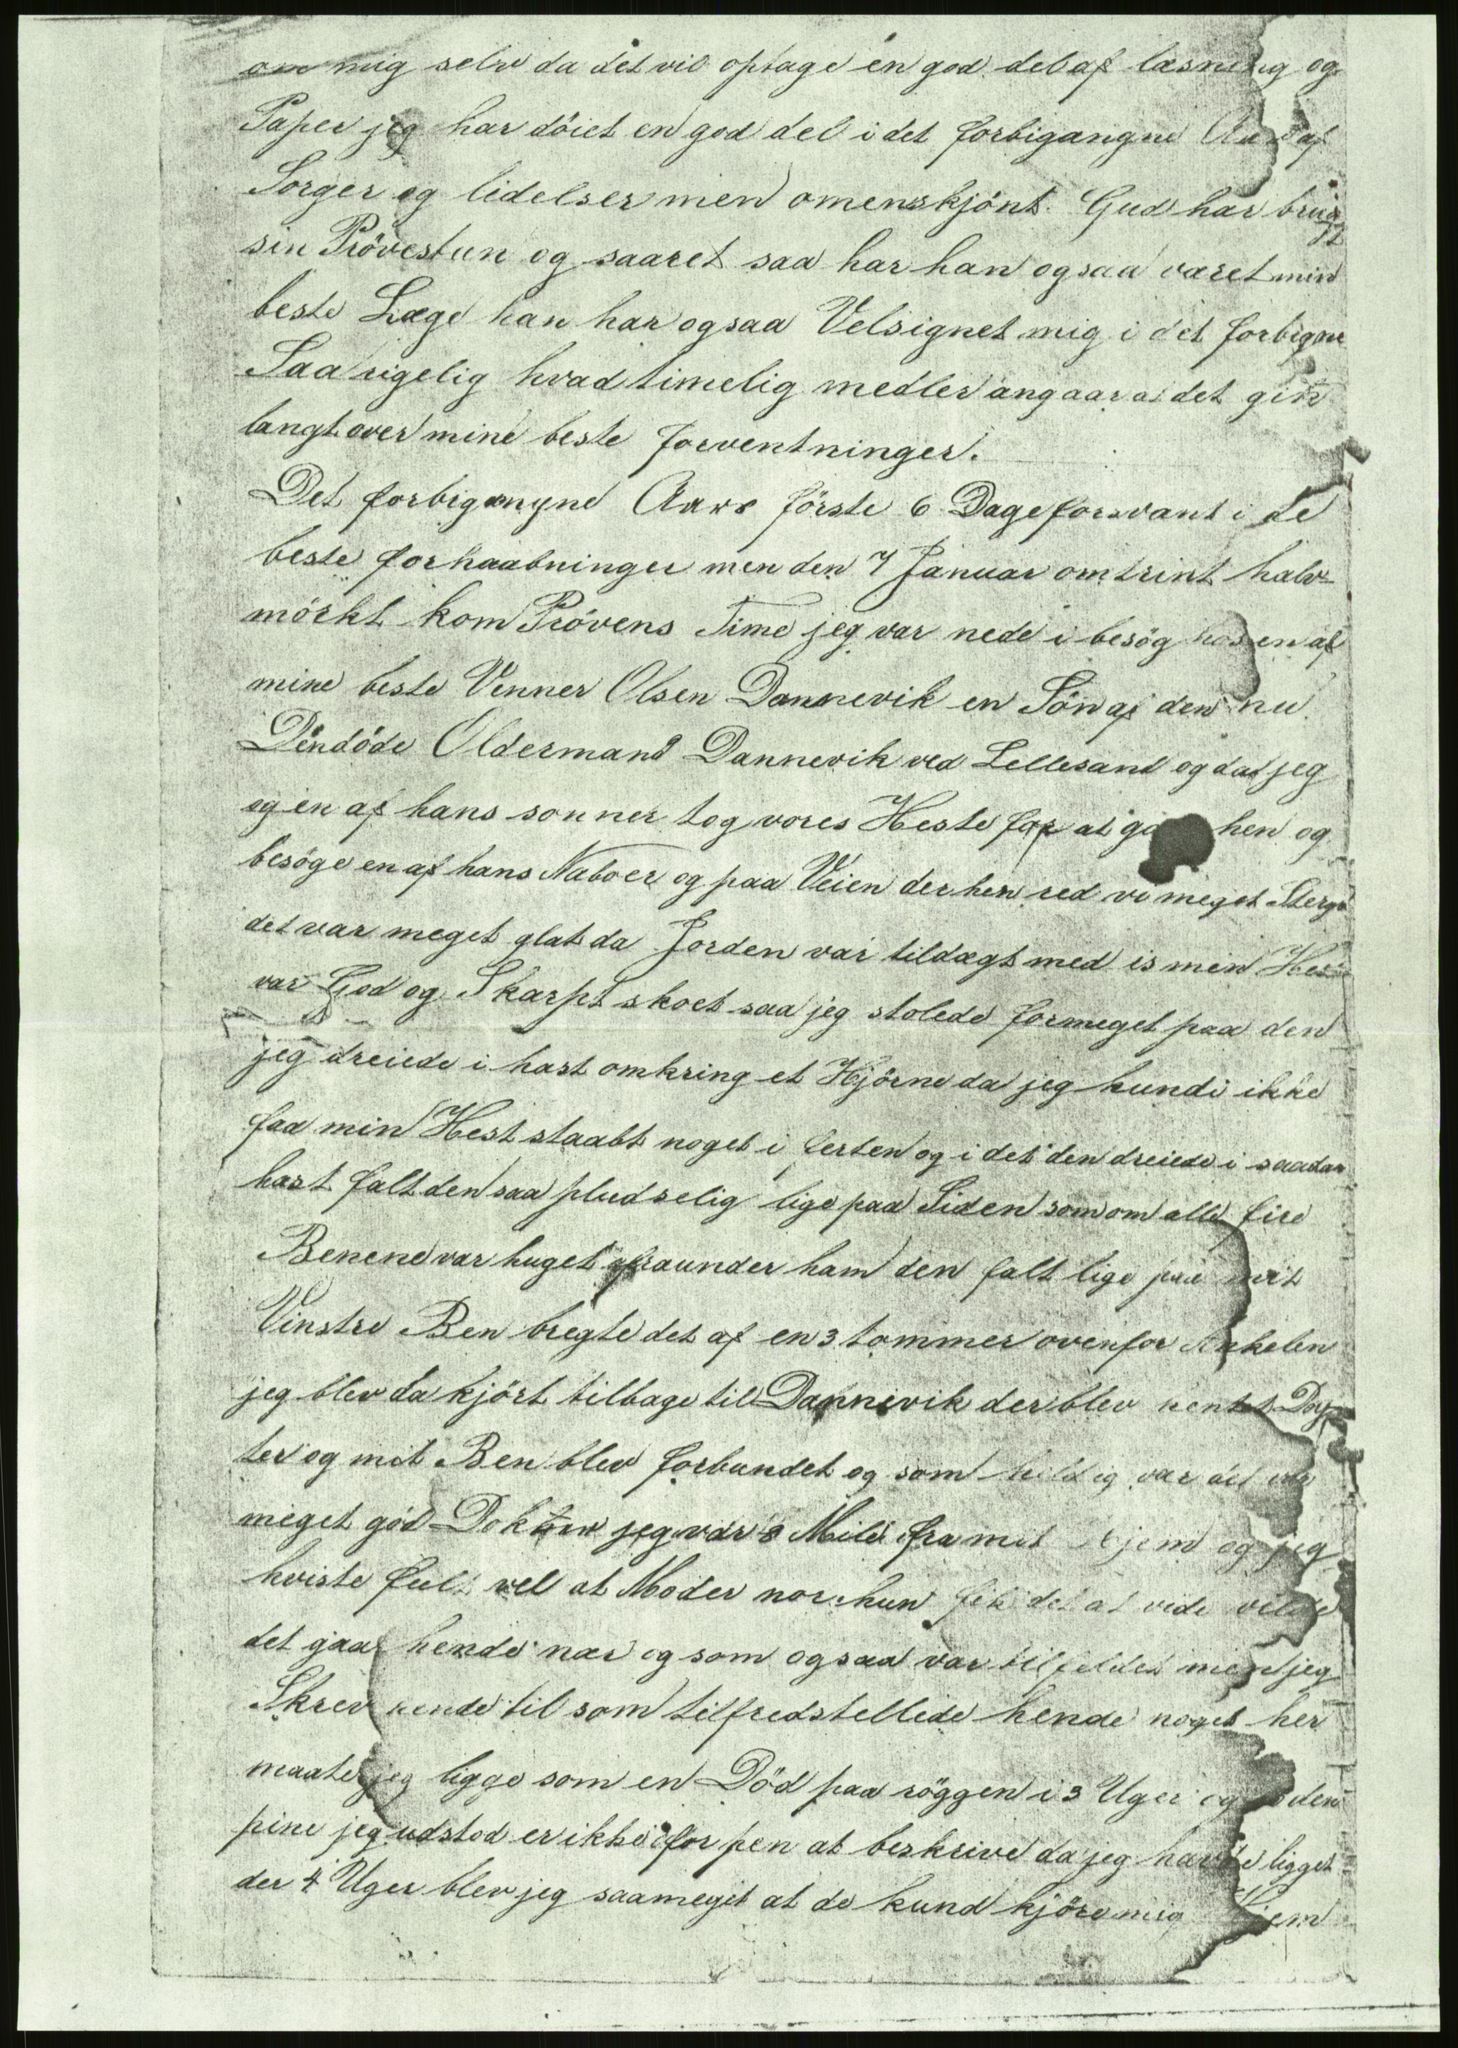 om mig selv da det vil optage en god del af læsning og
Paper jeg har döiet en god del i det forbigangne Aar af
Sorger og lidelser men omenskjönt Gud har brug
sin Prövestun og saaret saa har han ogsaa været min
beste Læge han har ogsaa Velsignet mig i det forbigne
Saa rigelig hvad timelig medler angaar at det gik
langt over mine beste forventninger.
Det forbigangne Aars förste 6 Dage forsvant i de
beste forhaabninger men den 7 Januar omtrint halv-
mörkt kom Prövens Time jeg var nede i besög hos en af
mine beste Venner Olsen Dannevik en Sön af den nu
Döndöde Oldermand Dannevik ved Lellesand og da jeg
og en af hans sonner tog vores Heste for at hen og
besöge en af hans Naboer og paa Veien der hen red vi meget
det var meget glat da Jorden var tildægt med is men
var God og Skarpt skoet saa jeg stolede formeget paa den
jeg dreiede i hast omkring et Hjörne da jeg kundi ikke
faa min Hest staabt noget i ferten og i det den dreiede i saadan
hast falt den saa pludselig lige paa Siden som om alle fire
Benene var huget fraunder ham den falt lige paa mit
Vinstre Ben bregte det af en 3 tommer ovenfor Ankelen
jeg blev da kjört tilbage til Dannevik der blev hentet
ter og mit Ben blev forbundet og som var det
meget god Dokter jeg var 8 Mile fra mit Hjem og jeg
hviste fult vel at Moder nor hun fik det at vide vilde
det gaar hende nær og som ogsaa var tilfeldet men jeg
Skrev hende til som tilfredstellede hende noget her
maate jeg ligge som en Död paa röggen i 3 Uger og den
pine jeg udstod er ikke for pen at beskrive da jeg havde ligget
der 4 Uger blev jeg saameget at de kund kjöre mig Hjem